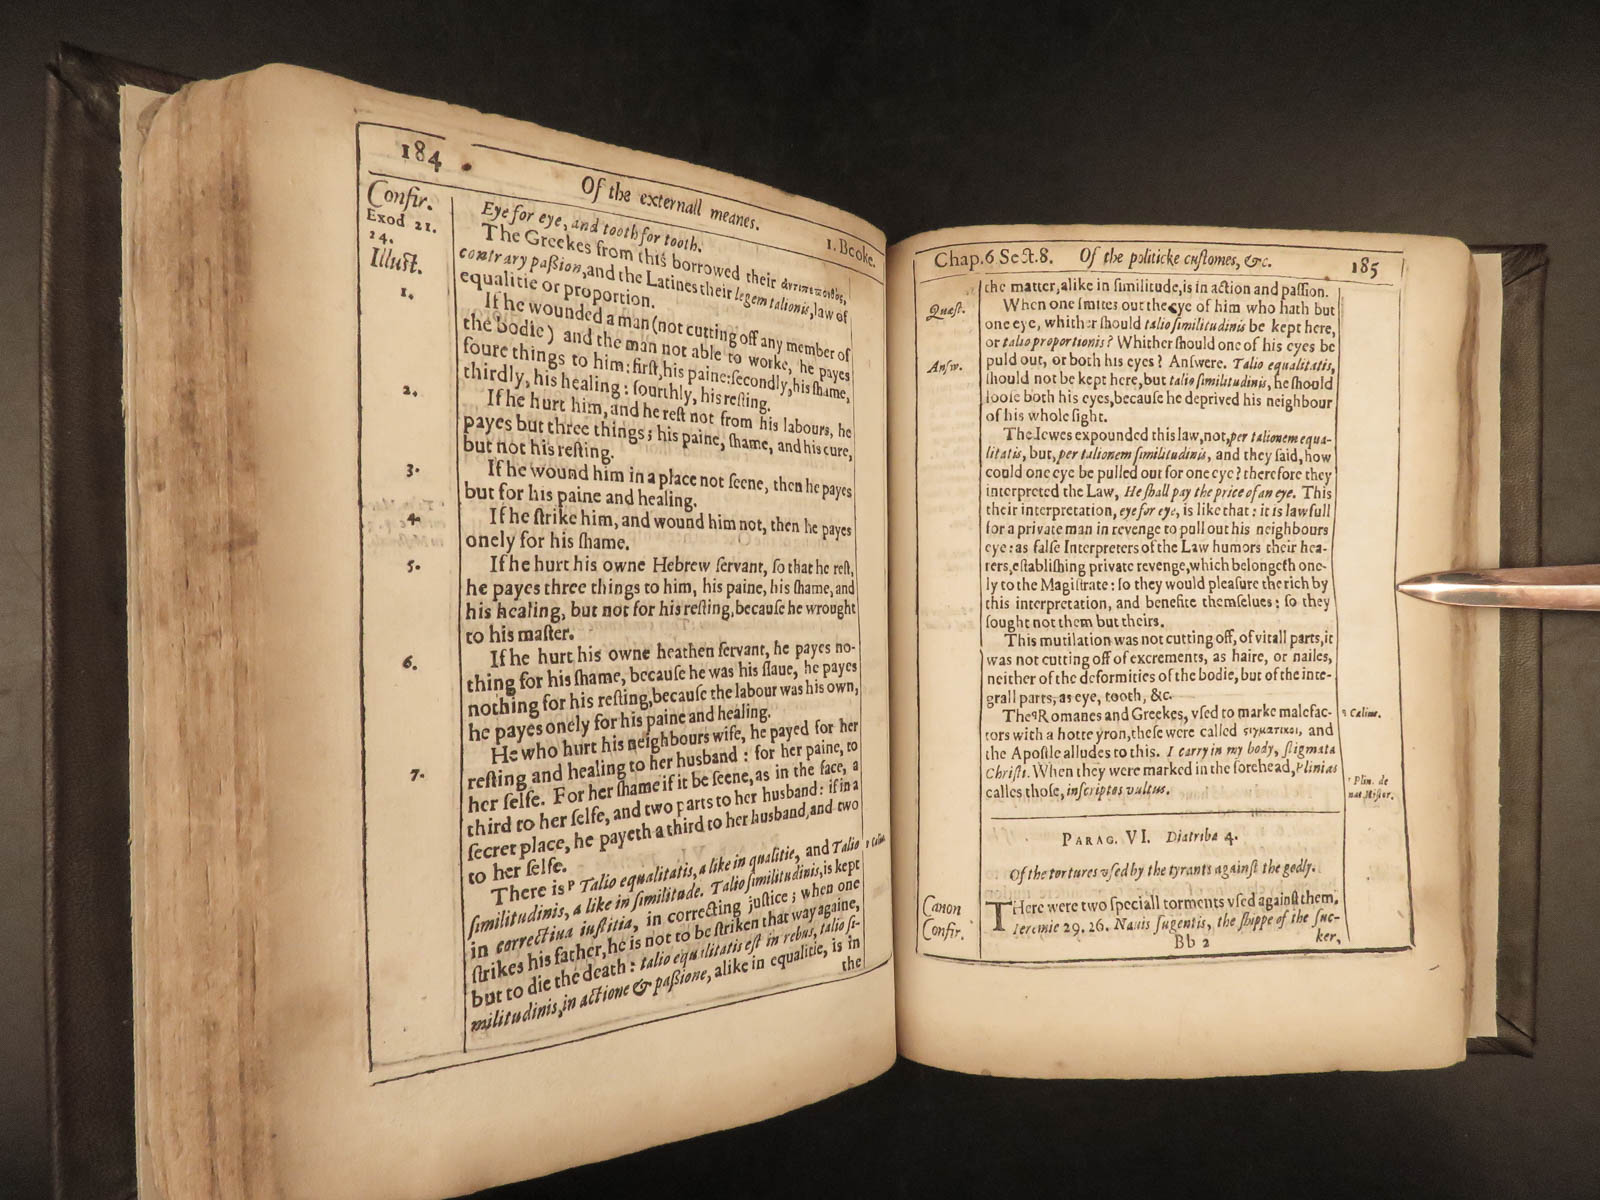 184
Of the externall meanes.
1. Booke.
Confir.
Exod 21.
24.
Illust.
Eye for eye, and tooth for tooth.
The Greekes from this borrowed their ἀντιπεπονθὸς,
contrary paßion, and the Latines their legem talionis, law of
equalitie or proportion.
1.
If he wounded a man (not cutting off any member of
the bodie) and the man not able to worke, he payes
foure things to him: first, his paine: secondly, his shame,
thirdly, his healing: fourthly, his resting.
2.
If he hurt him, and he rest not from his labours, he
payes but three things; his paine, shame, and his cure,
but not his resting.
3.
If he wound him in a place not seene, then he payes
but for his paine and healing.
4.
If he strike him, and wound him not, then he payes
onely for his shame.
5.
If he hurt his owne Hebrew servant, so that he rest,
he payes three things to him, his paine, his shame, and
his healing, but not for his resting, because he wrought
to his master.
6.
If he hurt his owne heathen servant, he payes no-
thing for his shame, because he was his slaue, he payes
nothing for his resting, because the labour was his own,
he payes onely for his paine and healing.
7.
He who hurt his neighbours wife, he payed for her
resting and healing to her husband: for her paine, to
her selfe. For her shame if it be seene, as in the face, a
third to her selfe, and two parts to her husband: if in a
secret place, he payeth a third to her husband, and two
to her selfe.
There is P Talio equalitatis, a like in qualitie, and Talio
similitudinis, a like in similitude. Talio similitudinis, is kept
in correctiua iustitia, in correcting justice; when one
strikes his father, he is not to be striken that way againe,
but to die the death: talio equalitatis est in rebus, talio si-
militudinis, in actione & paßione, alike in equalitie, is in
the
Chap.6 Sect.8.
Of the politicke customes, &c.
185
the matter, alike in similitude, is in action and passion.
Quæst.
When one smites out the eye of him who hath but
one eye, whither should talio similitudinis be kept here,
or talio proportionis? Whither should one of his eyes be
Answ.
puld out, or both his eyes? Answere. Talio equalitatis,
should not be kept here, but talio similitudinis, he should
loose both his eyes, because he deprived his neighbour
of his whole sight.
The Iewes expounded this law, not, per talionem equa-
litatis, but, per talionem similitudinis, and they said, how
could one eye be pulled out for one eye? therefore they
interpreted the Law, He shall pay the price of an eye. This
their interpretation, eye for eye, is like that: it is lawfull
for a private man in revenge to pull out his neighbours
eye: as false Interpreters of the Law humors their hea-
rers, establishing private revenge, which belongeth one-
ly to the Magistrate: so they would pleasure the rich by
this interpretation, and benefite themselues: so they
sought not them but theirs.
This mutilation was not cutting off, of vitall parts, it
was not cutting off of excrements, as haire, or nailes,
neither of the deformities of the bodie, but of the inte-
grall parts, as eye, tooth, &c.
The q Romanes and Greekes, vsed to marke malefac-
tors with a hotte yron, these were called στιγματικοι, and
the Apostle alludes to this. I carry in my body, stigmata
Christi. When they were marked in the forehead, Plinias
calles those, inscriptos vultus.
Plin. de
nat. Histor.
PARAG. VI. Diatriba 4.
Of the tortures vsed by the tyrants against the godly.
Canon
Confir.
THere were two speciall torments vsed against them,
Ieremie 29. 26. Nauis sugentis, the shippe of the suc-
Bb 2
ker,